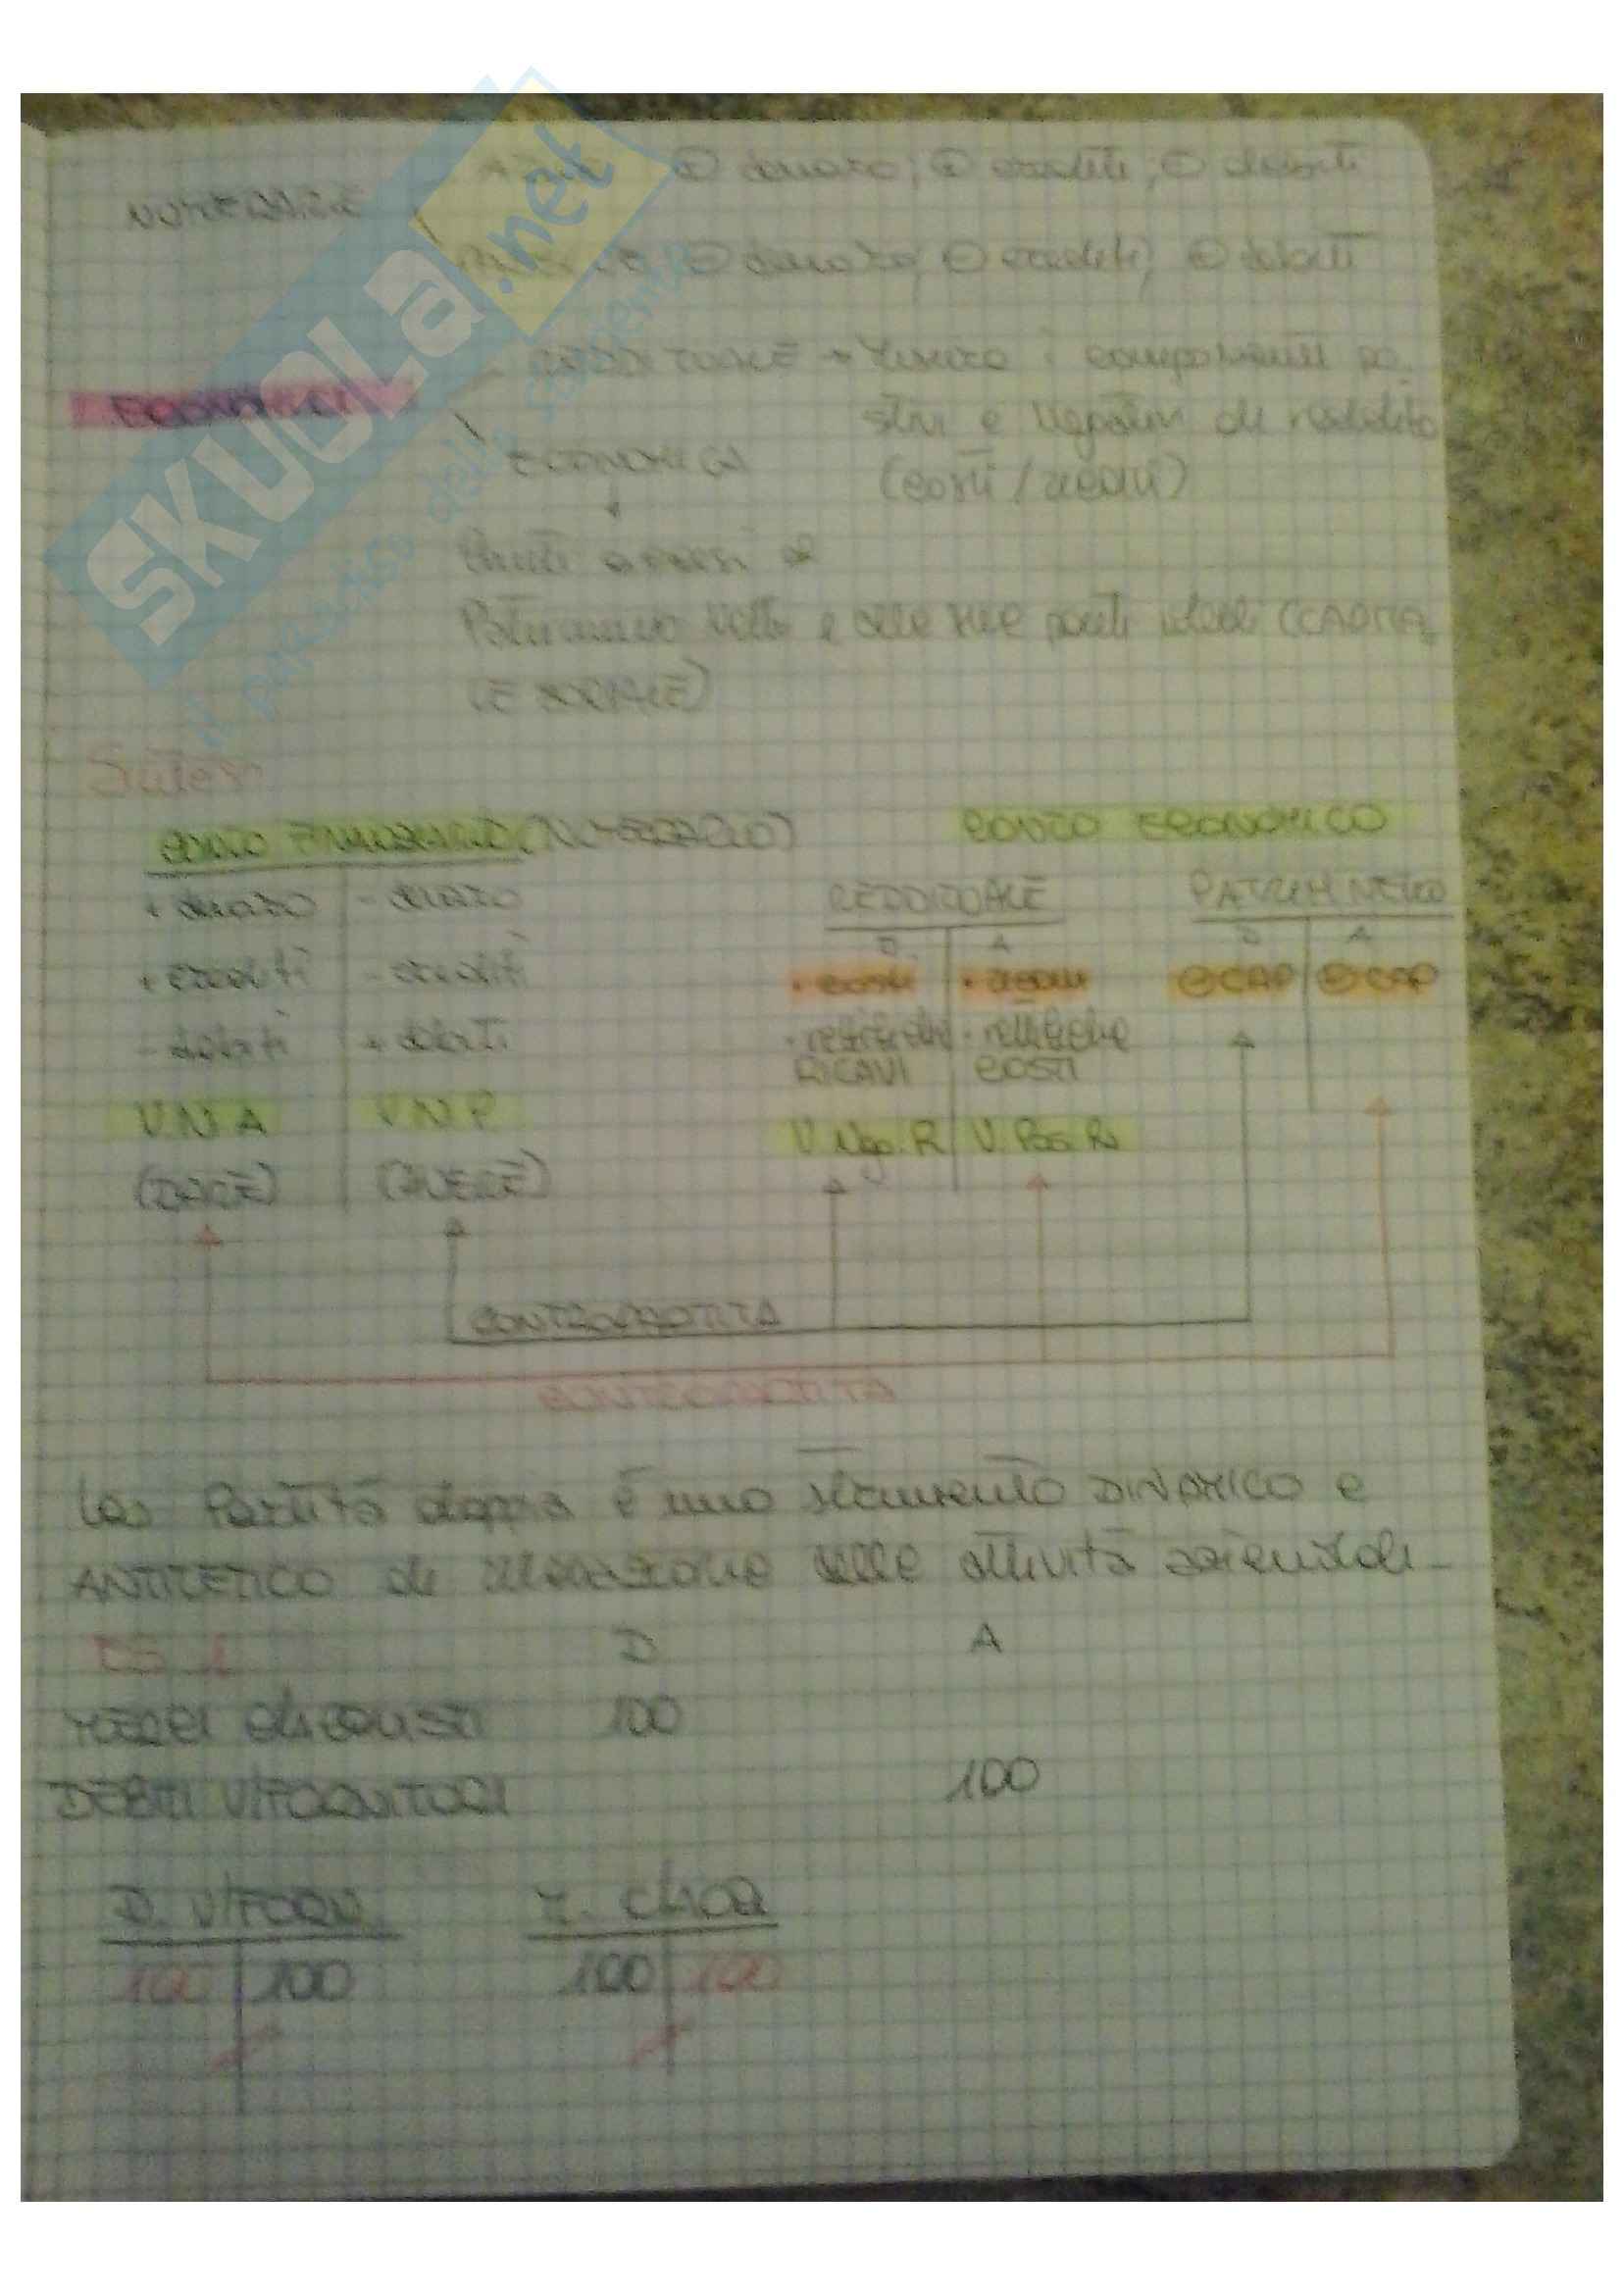 NUMERARIE
⊕ denaro; ⊕ crediti; ⊖ debiti
⊖ denaro; ⊖ crediti; ⊕ debiti
REDDITUALE → misura i componenti po-
ECONOMICI
sitivi e negativi di reddito
ECONOMICA
(costi / ricavi)
Patrimonio netto e alle sue parti ideali (CAPITA
LE SOCIALE)
Sintesi
CONTO FINANZIARIO (NUMERARIO)
CONTO ECONOMICO
+ denaro - denaro
REDDITUALE
D A
D A
+ crediti - crediti
+ costi + ricavi
⊖ CAP ⊕ CAP
- debiti + debiti
- rettifiche - rettifiche
RICAVI COSTI
V.N.A V.N.P
V. Neg. R V. Pos. R
(DARE) (AVERE)
CONTROPARTITA
CONTROPARTITA
La Partita doppia è uno strumento DINAMICO e
ANTITETICO di rilevazione delle attività aziendali
ES 1 D A
MERCI C/ACQUISTI 100
DEBITI V/FORNITORI 100
D. V/FORN. M. C/ACQ
100 100 100 100
SKUOLA.net
il paradiso dello studente